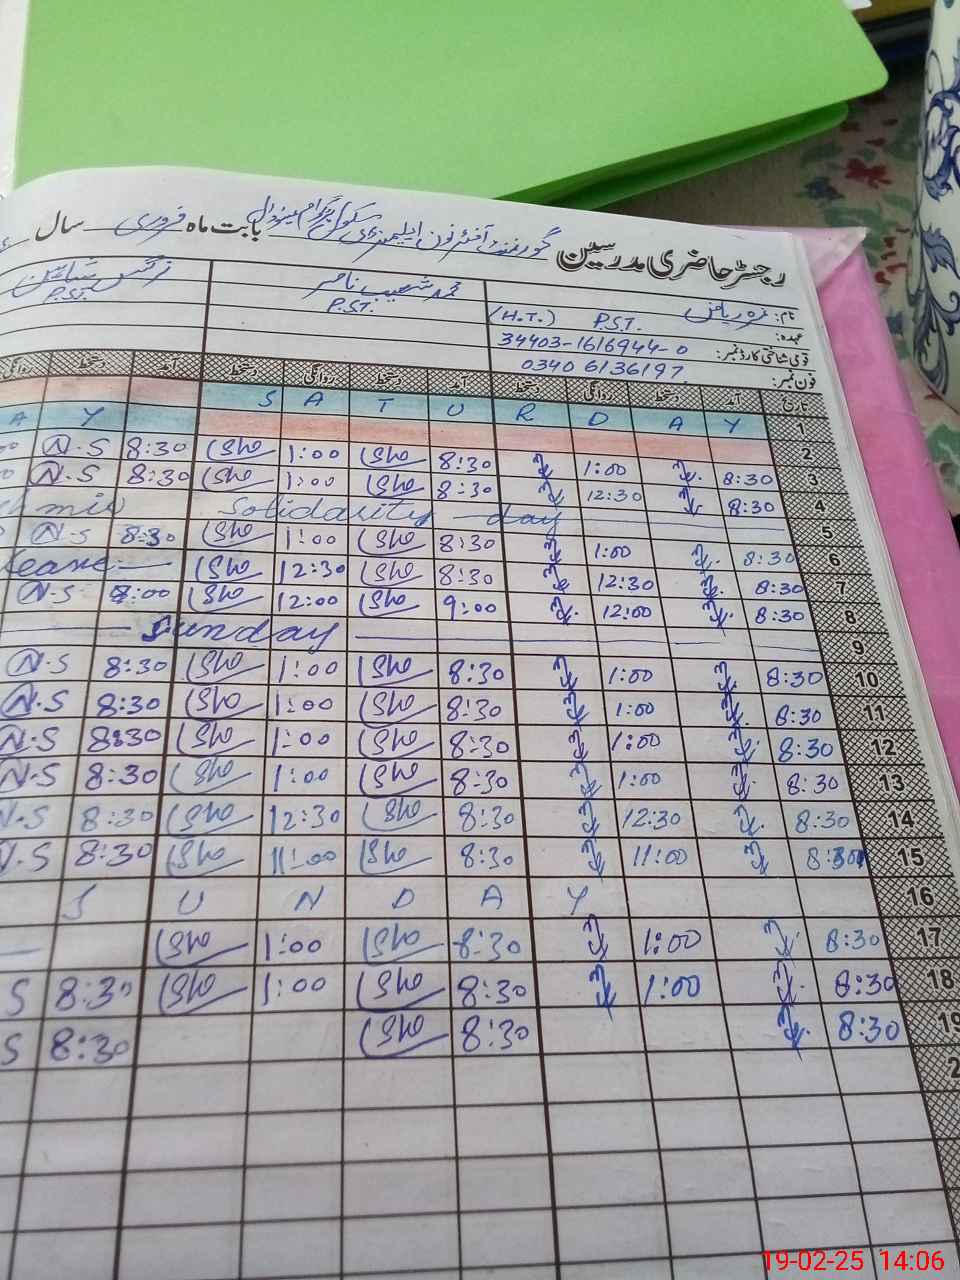 رجسٹر حاضری مدرسین گورنمنٹ بابت ماہ فروری سال
نام: محمد شعیب ناصر نرگس شاہین
عہدہ: P.S.T. (H.T.) P.S.T. P.S.T.
قومی شناختی کارڈ نمبر: 34403-1616944-0
فون نمبر: 0340 6136197
تاریخ آمد دستخط روانگی دستخط آمد دستخط روانگی دستخط آمد دستخط روانگی
1 S A T U R D A Y A Y
2
3 8:30 1:00 8:30 Sho 1:00 Sho 8:30 N.S
4 8:30 12:30 8:30 Sho 1:00 Sho 8:30 N.S
5 Solidarity day
6 8:30 1:00 8:30 Sho 1:00 Sho 8:30 N.S
7 8:30 12:30 8:30 Sho 12:30 Sho
8 8:30 12:00 9:00 Sho 12:00 Sho N.S
9 Sunday
10 8:30 1:00 8:30 Sho 1:00 Sho 8:30 N.S
11 8:30 1:00 8:30 Sho 1:00 Sho 8:30 N.S
12 8:30 1:00 8:30 Sho 1:00 Sho 8:30 N.S
13 8:30 1:00 8:30 Sho 1:00 Sho 8:30 N.S
14 8:30 12:30 8:30 Sho 12:30 Sho 8:30 N.S
15 8:30 11:00 8:30 Sho 11:00 Sho 8:30 N.S
16 S U N D A Y
17 8:30 1:00 8:30 Sho 1:00 Sho
18 8:30 1:00 8:30 Sho 1:00 Sho 8:30 S
19 8:30 8:30 Sho 8:30 S
2
19-02-25 14:06